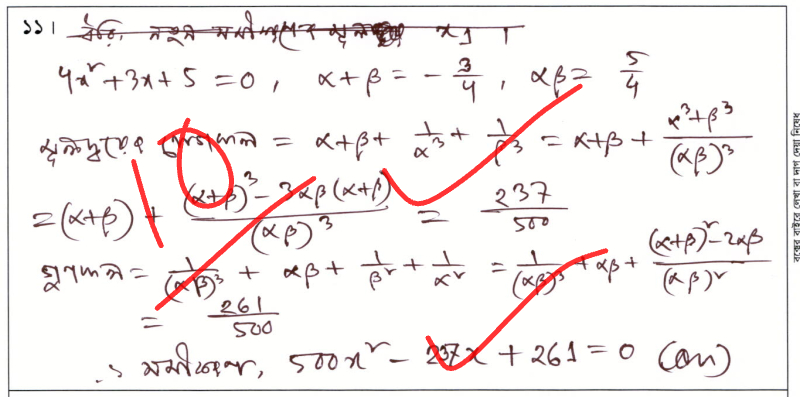 ১১। ধরি, নতুন সমীকরণের মূলদ্বয় x₁ ।
4x² + 3x + 5 = 0 , α + β = - 3/4 , αβ = 5/4
মূলদ্বয়ের যোগফল = α + β + 1/α³ + 1/β³ = α + β + (α³ + β³)/(αβ)³
= (α + β) + ((α + β)³ - 3αβ(α + β))/(αβ)³ = 237/500
গুণফল = 1/(αβ)³ + αβ + 1/β² + 1/α² = 1/(αβ)³ + αβ + ((α + β)² - 2αβ)/(αβ)²
= 261/500
∴ সমীকরণ, 500x² - 237x + 261 = 0 (Ans)
10
বক্সের বাইরে লেখা বা দাগ দেয়া নিষেধ